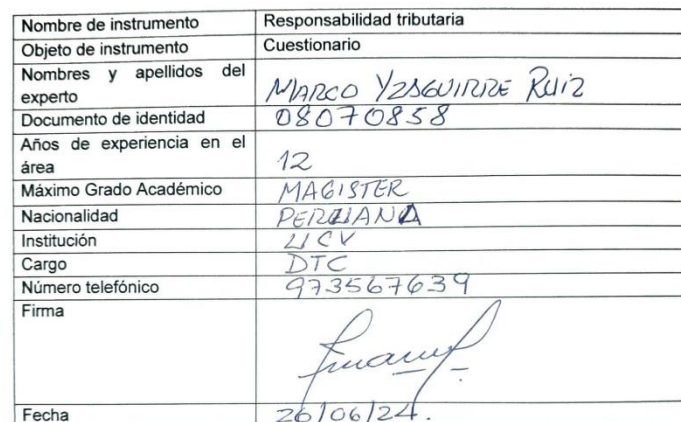 Nombre de instrumento Responsabilidad tributaria
Objeto de instrumento Cuestionario
Nombres y apellidos del
experto MARCO YZAGUIRRE RUIZ
Documento de identidad 08070858
Años de experiencia en el
área 12
Máximo Grado Académico MAGISTER
Nacionalidad PERUANA
Institución UCV
Cargo DTC
Número telefónico 973567639
Firma
Fecha 26/06/24.